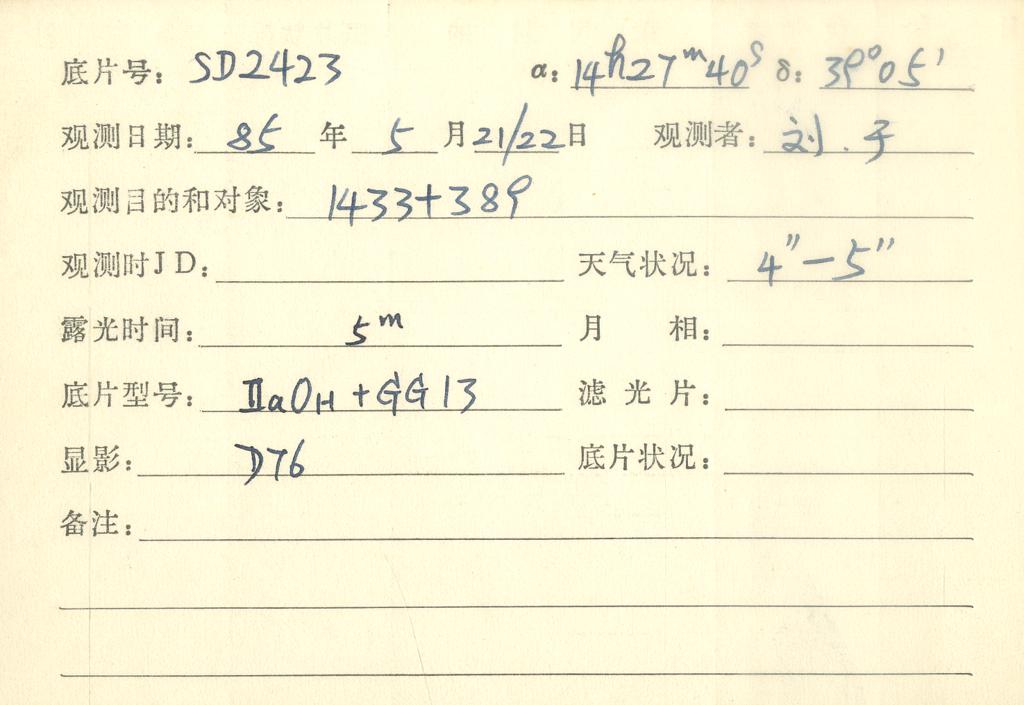 底片号: SD2423 α: 14ʰ27ᵐ40ˢ δ: 39°05'
观测日期: 85 年 5 月 21/22 日 观测者: 刘.于
观测目的和对象: 1433+389
观测时JD: 天气状况: 4"—5"
露光时间: 5ᵐ 月 相:
底片型号: ⅡaOH+GG13 滤光片:
显影: D76 底片状况:
备注: